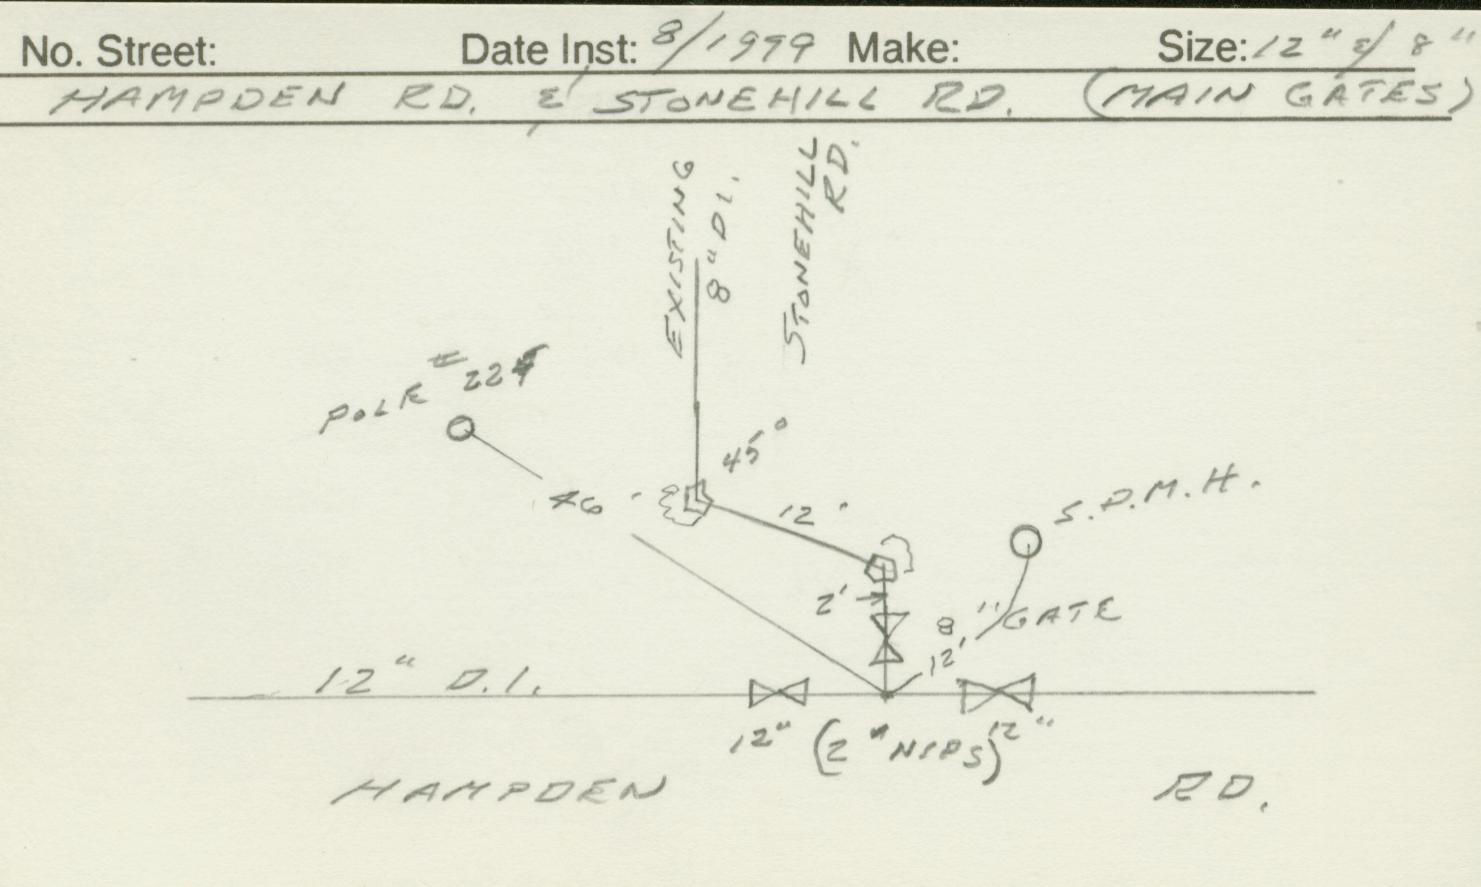 No. Street: Date Inst: 8/1999 Make: Size: 12" & 8"
HAMPDEN RD. & STONEHILL RD. (MAIN GATES)
EXISTING
8" D.I.
STONEHILL
RD.
POLE #
45°
46'
12'
S.D.M.H.
2'
8" GATE
12'
12" D.I.
12" (2" NIPS) 12"
HAMPDEN RD.